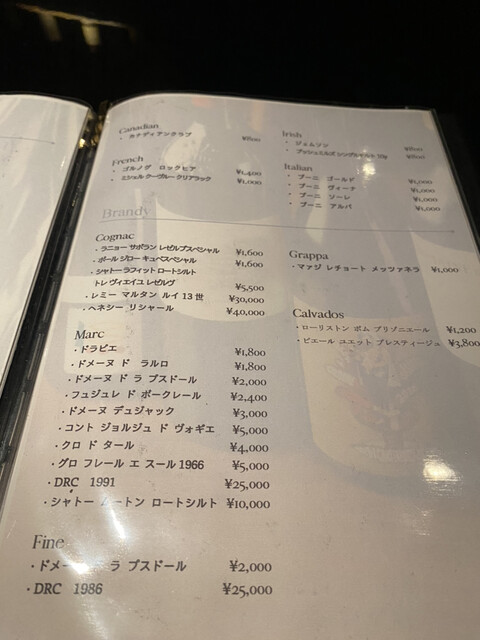 Canadian
・カナディアンクラブ ¥800
French
・ゴルノグ ロックヒア ¥1,400
・ミシェル クーヴルー クリアラック ¥1,000
Irish
・ジェムソン ¥800
・ブッシュミルズ シングルモルト ¥800
Italian
・プーニ ゴールド ¥1,000
・プーニ ヴィーナ ¥1,000
・プーニ ソーレ ¥1,000
・プーニ アルバ ¥1,000
Brandy
Cognac
・ラニョー サボラン レゼルブスペシャル ¥1,600
・ポール ジロー キュベスペシャル ¥1,600
・シャトー ラフィット ロートシルト
トレ ヴィエイユ レゼルヴ ¥5,500
・レミー マルタン ルイ 13 世 ¥30,000
・ヘネシー リシャール ¥40,000
Grappa
・マァジ レチョート メッツァネラ ¥1,000
Calvados
・ローリストン ポム プリゾニエール ¥1,200
・ピエール ユエット プレスティージュ ¥3,800
Marc
・ドラピエ ¥1,800
・ドメーヌ ド ラルロ ¥1,800
・ドメーヌ ド ラ プスドール ¥2,000
・フュジュレ ド ボークレール ¥2,400
・ドメーヌ デュジャック ¥3,000
・コント ジョルジュ ド ヴォギエ ¥5,000
・クロ ド タール ¥4,000
・グロ フレール エ スール 1966 ¥5,000
・DRC 1991 ¥25,000
・シャトー ートン ロートシルト ¥10,000
Fine
・ドメー ラ プスドール ¥2,000
・DRC 1986 ¥25,000